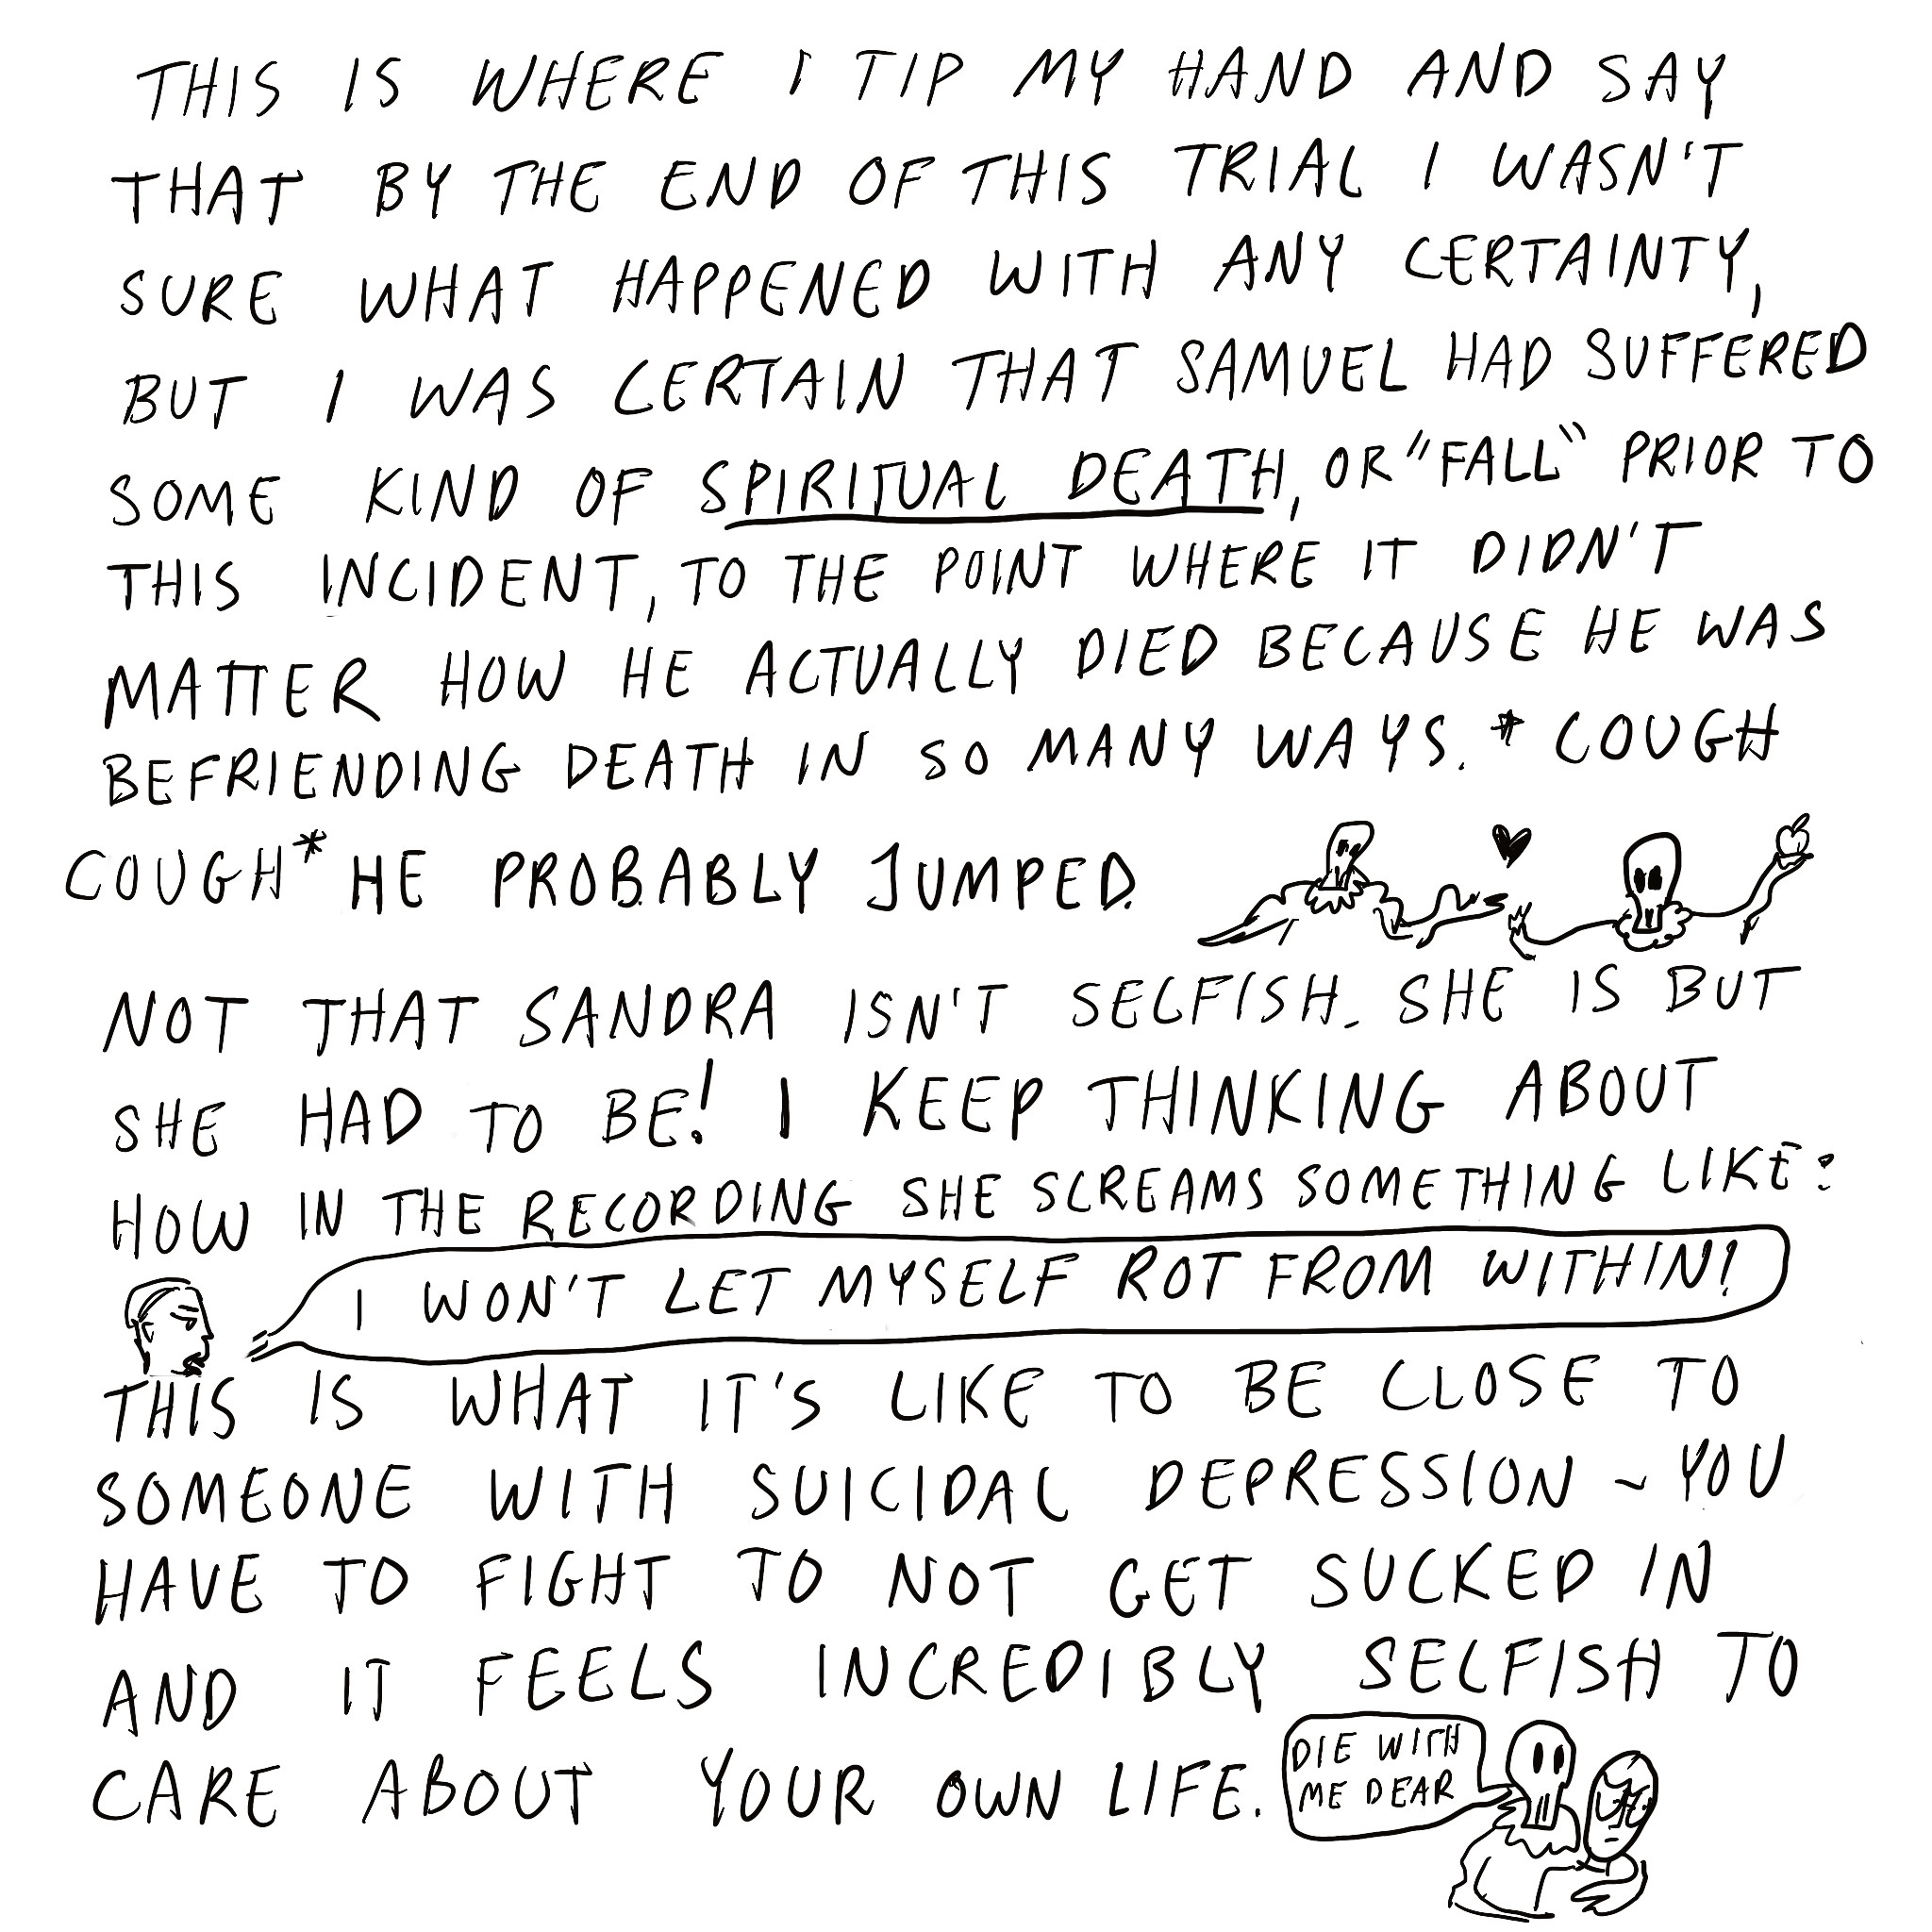 THIS IS WHERE I TIP MY HAND AND SAY
THAT BY THE END OF THIS TRIAL I WASN'T
SURE WHAT HAPPENED WITH ANY CERTAINTY,
BUT I WAS CERTAIN THAT SAMUEL HAD SUFFERED
SOME KIND OF SPIRITUAL DEATH, OR "FALL" PRIOR TO
THIS INCIDENT, TO THE POINT WHERE IT DIDN'T
MATTER HOW HE ACTUALLY DIED BECAUSE HE WAS
BEFRIENDING DEATH IN SO MANY WAYS. * COUGH
COUGH* HE PROBABLY JUMPED.
NOT THAT SANDRA ISN'T SELFISH. SHE IS BUT
SHE HAD TO BE! I KEEP THINKING ABOUT
HOW IN THE RECORDING SHE SCREAMS SOMETHING LIKE:
I WON'T LET MYSELF ROT FROM WITHIN!
THIS IS WHAT IT'S LIKE TO BE CLOSE TO
SOMEONE WITH SUICIDAL DEPRESSION ~ YOU
HAVE TO FIGHT TO NOT GET SUCKED IN
AND IT FEELS INCREDIBLY SELFISH TO
CARE ABOUT YOUR OWN LIFE.
DIE WITH
ME DEAR